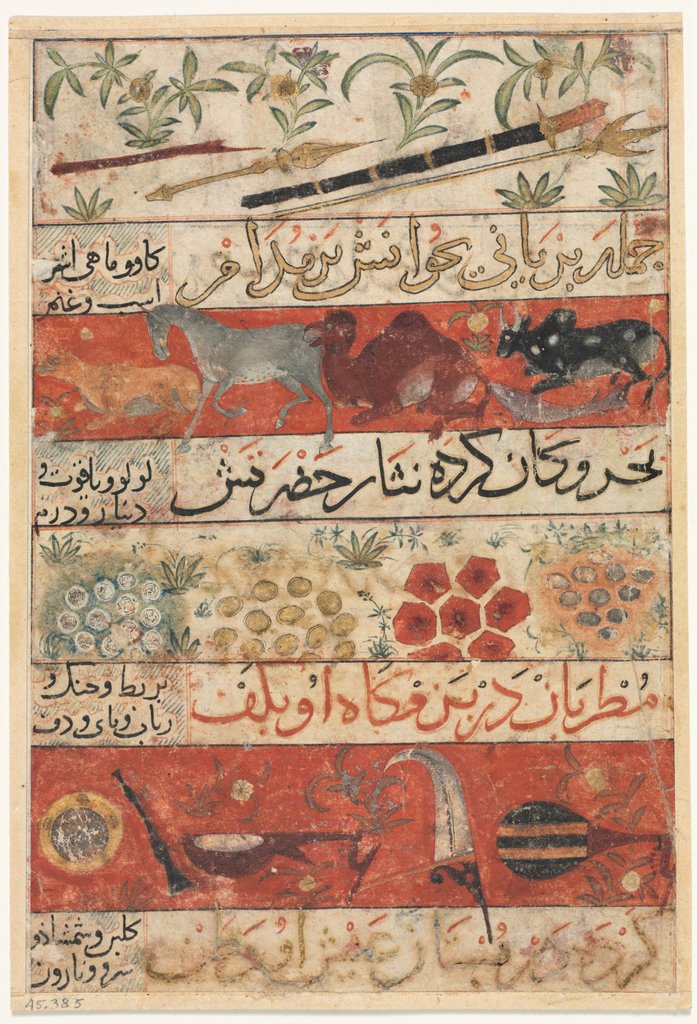 جمله بریانی بخوانش بر مدام از
کاو و ماهی اشتر
اسب و غنم
بحر و کان کرده نثار حضرتش
لولو و یاقوت و
دینار و درم
مطربان در بزمکاه او بکف
بربط و چنک و
رباب و نای و دف
کرده در بستان عیش او وطن
کلبن و شمشاد و
سرو و نارون
45.385